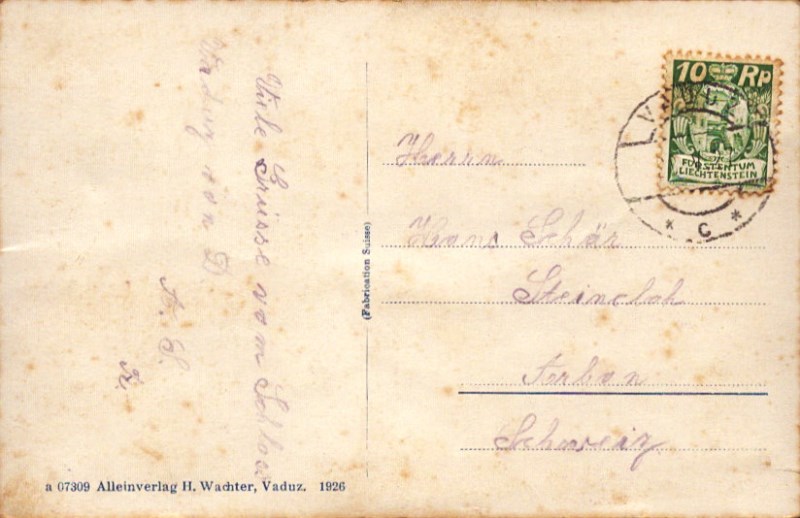 Viele Grüsse vom Schloss
Vaduz von D
A. S.
K.
(Fabrication Suisse)
10 Rp
FÜRSTENTUM
LIECHTENSTEIN
VADUZ
* C *
Herrn
Hans Schär
Steineloh
Arbon
Schweiz.
a 07309 Alleinverlag H. Wachter, Vaduz. 1926